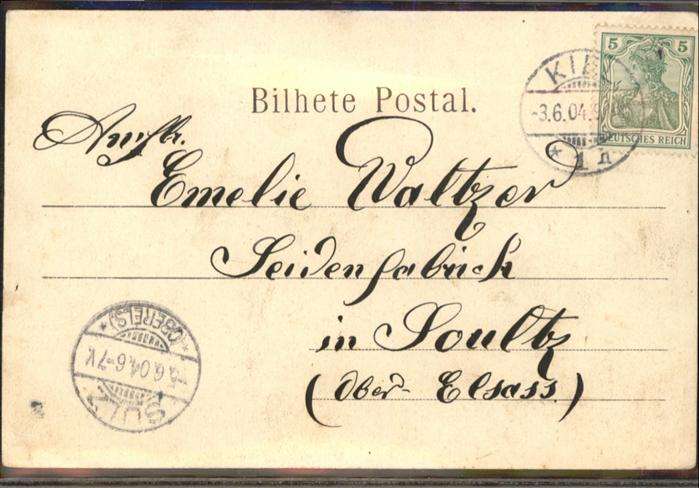 Bilhete Postal.
5 5
DEUTSCHES REICH
-3.6.04.
* 1 n
Emelie Waltzer
Seidenfabrick
in Soultz
(Ober-Elsass.)
(OBERELS) *
.6.04.6-7N
SULZ